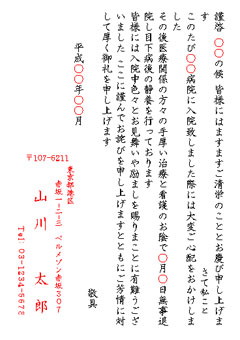 謹啓 〇〇の候 皆様にはますますご清栄のこととお慶び申し上げま
す
さて私こと
このたび〇〇病院に入院致しました際には大変ご心配をおかけしま
した
その後医療関係の方々の手厚い治療と看護のお陰で〇月〇日無事退
院し目下病後の静養を行っております
皆様には入院中色々とお見舞いや励ましを賜りまことに有難うござ
いました ここに謹んでお詫びを申し上げますとともにご芳情に対
して厚く御礼を申し上げます
敬具
平成〇〇年〇〇月
〒107-6211
東京都港区
赤坂一-二-三 ベルメゾン赤坂307
山川 太郎
Tel 03-1234-5678